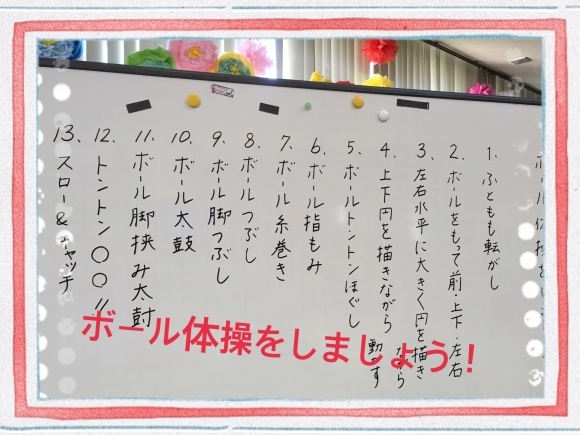 1、ふともも転がし
2、ボールをもって前・上下・左右
3、左右水平に大きく円を描き
ながら
4、上下円を描きながら
動かす
5、ボールトントンほぐし
6、ボール指もみ
7、ボール糸巻き
8、ボールつぶし
9、ボール脚つぶし
10、ボール太鼓
11、ボール脚挟み太鼓
12、トントン〇〇!!
13、スロー&キャッチ
ボール体操をしましょう!